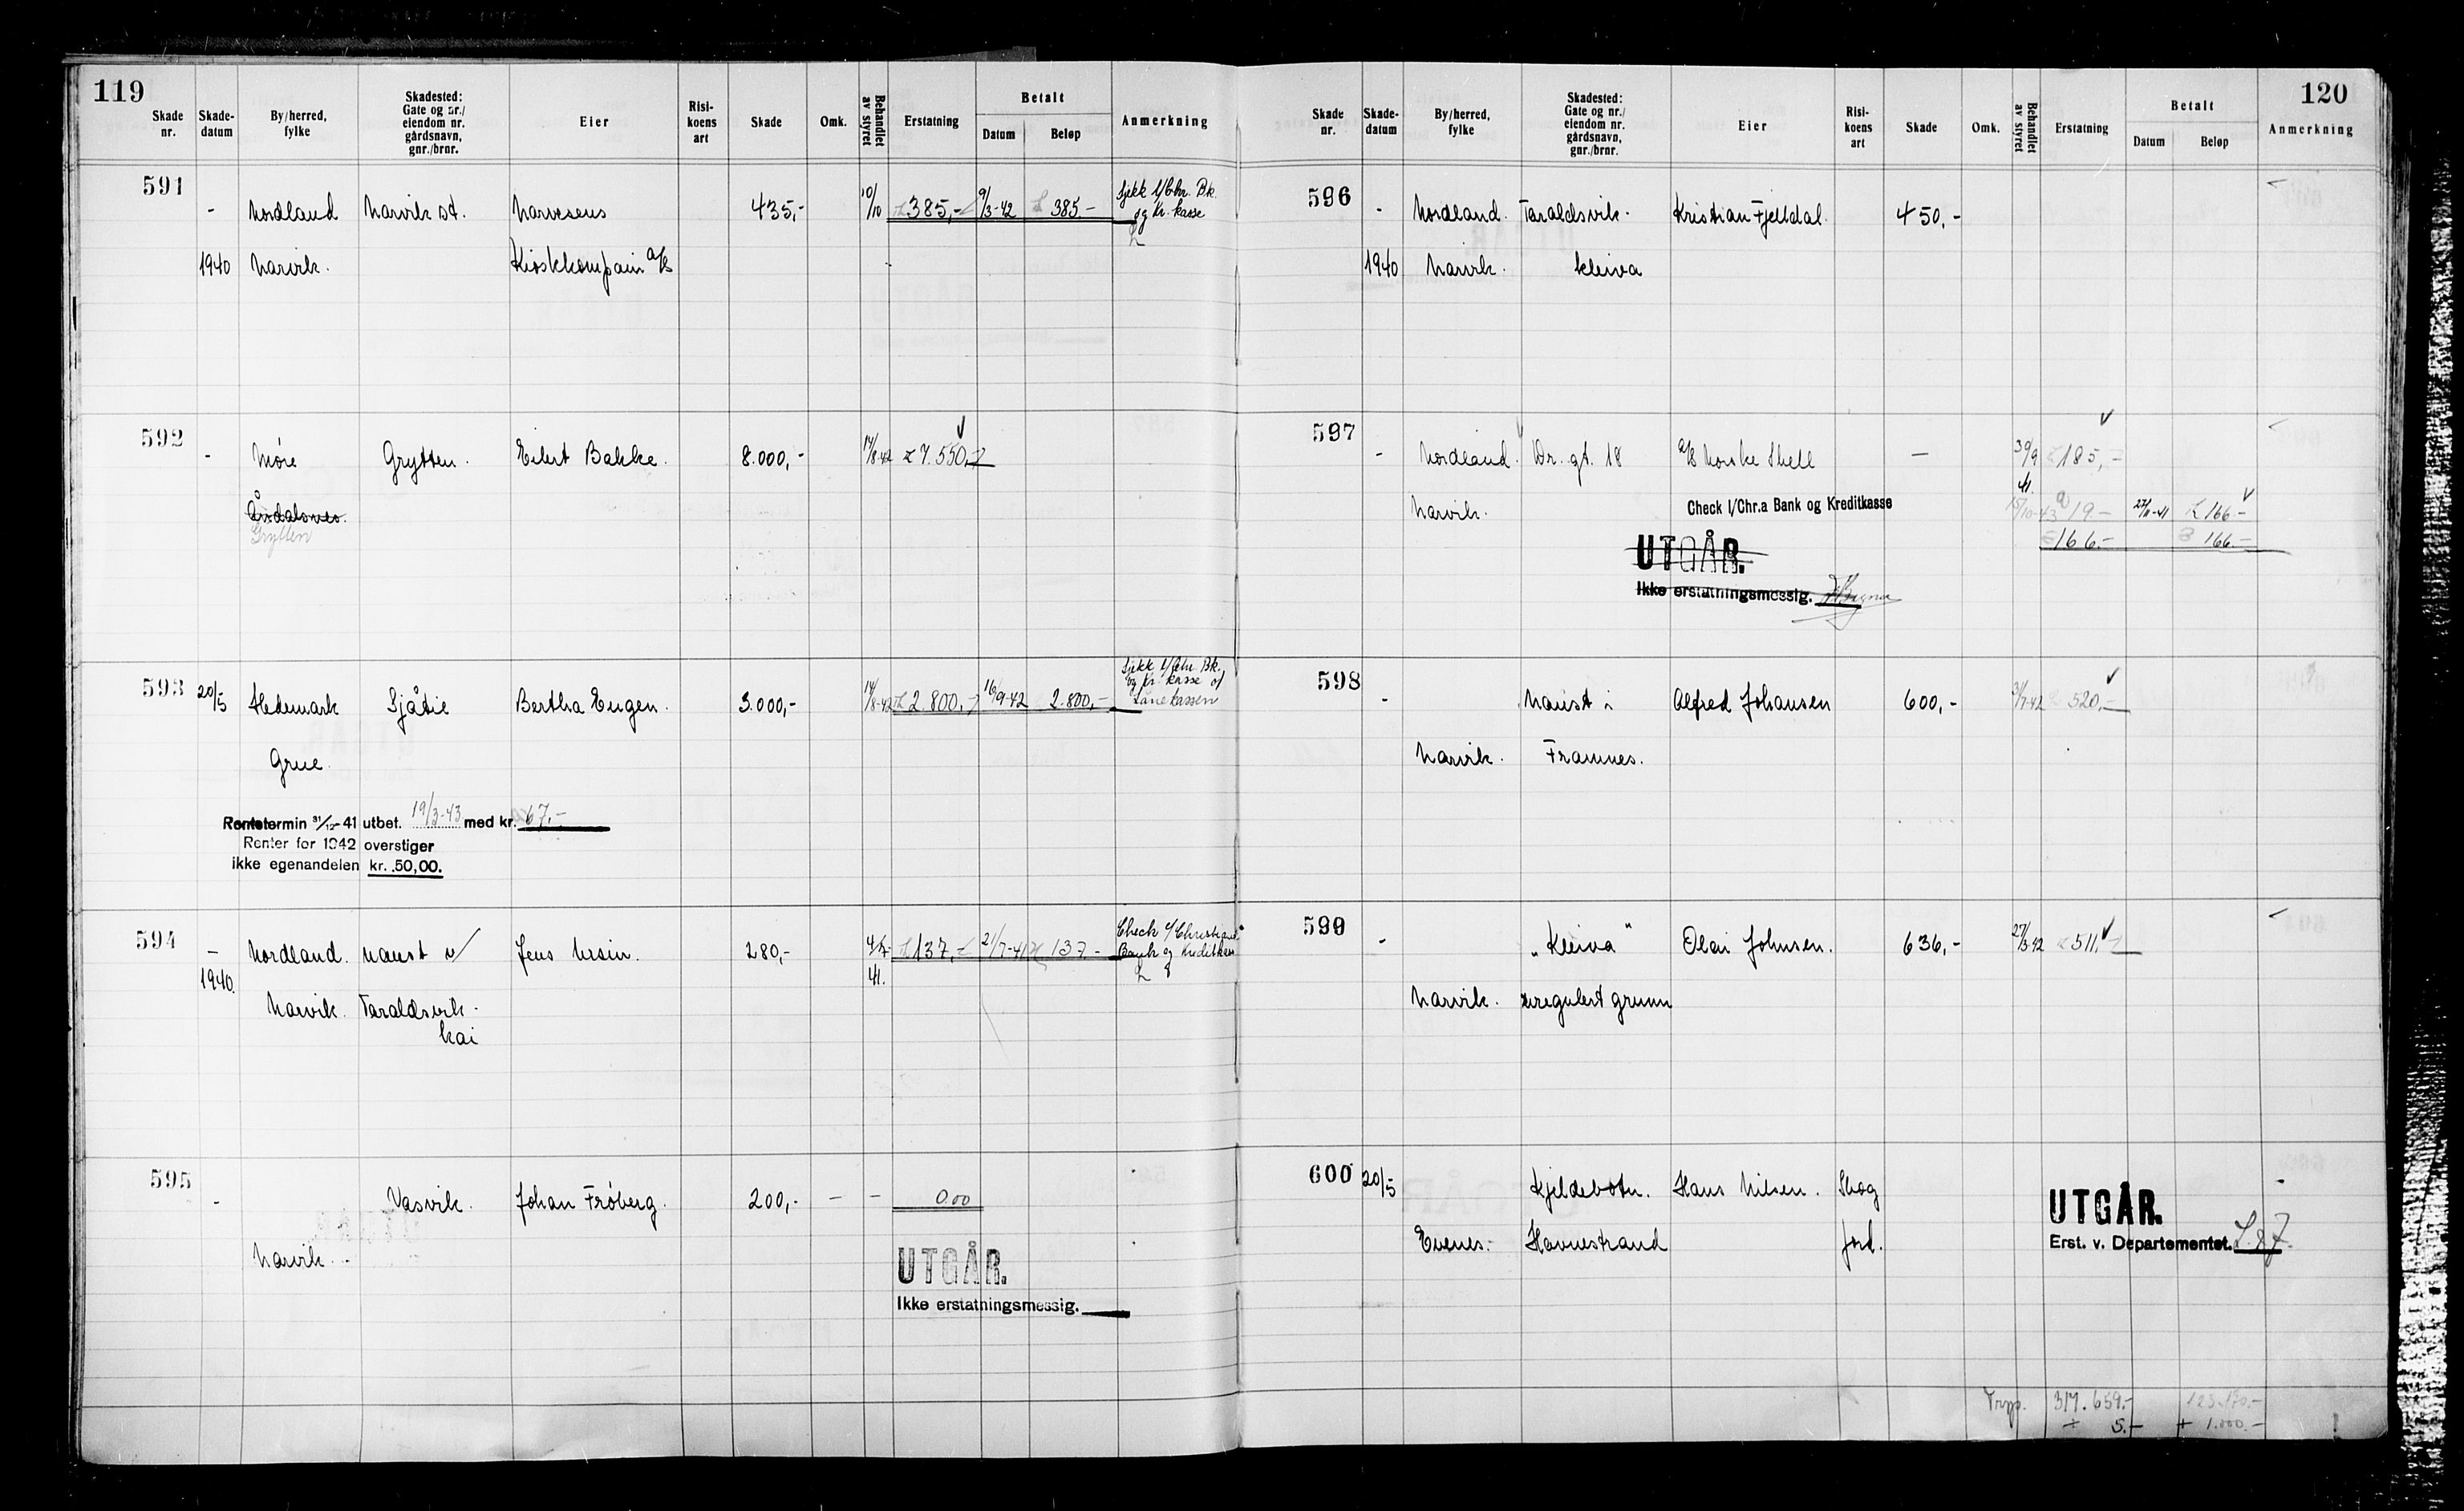 119
Skade nr. Skade-datum By/herred, fylke Skadested: Gate og nr./ eiendom nr. gårdsnavn, gnr./brnr. Eier Risi-koens art Skade Omk. Behandlet av styret Erstatning Betalt Datum Beløp Anmerkning
591 - Nordland Narvik st. Narvesens 435,- 10/10 385,- 9/3-42 385.- Sjekk l/Chr. Bk.
og Kr. kasse
1940 Narvik. Kioskkompani A/S
592 - Møre Grytten. Eilert Bakke. 8.000,- 14/8-42 7.550,-
Åndalsnes.
Grytten
593 20/5 Hedemark Sjåtie Bertha Engen. 3.000,- 14/8-42 2.800,- 16/9-42 2.800,- Sjekk l/Chr. Bk.
og Kr. kasse of
Lånekassen
Grue
Rentetermin 31/12-41 utbet. 19/3-43 med kr. 67.-
Renter for 1942 overstiger
ikke egenandelen kr. 50,00.
594 - Nordland. naust v/ Jens Ursin. 280,- 4/7- 41. 137,- 21/7-41 137- Check
Bank og Kreditkasse
1940.
Narvik. Taraldsvik-
kai
595 - Vasvik. Johan Frøberg. 200,- - - 0.00
Narvik.
UTGÅR.
Ikke erstatningsmessig.
120
Skade nr. Skade-datum By/herred, fylke Skadested: Gate og nr./ eiendom nr. gårdsnavn, gnr./brnr. Eier Risi-koens art Skade Omk. Behandlet av styret Erstatning Betalt Datum Beløp Anmerkning
596 - Nordland. Taraldsvik- Kristian Fjelldal. 450,-
1940 Narvik. kleiva
597 - Nordland. Dr. gt. 18 A/S Norske Shell — 30/9 41. 185,-
Narvik. Check l/Chr.a Bank og Kreditkasse 15/10-43 19- 27/11-41 166-
166.- 166.-
UTGÅR.
Ikke erstatningsmessig.
598 - Naust i Alfred Johansen 600,- 31/7-42 520,-
Narvik. Framnes.
599 - "Kleiva" Olai Johnsen. 636,- 27/3-42 511,-
Narvik. uregulert grunn
600 20/5 Kjeldebotn. Hans Nilsen. Skog
Evenes. Havnestrand jord.
UTGÅR.
Erst. v. Departementet.
Trsp. 317.659.- 123.170.-
+ 5.- + 1.000.-